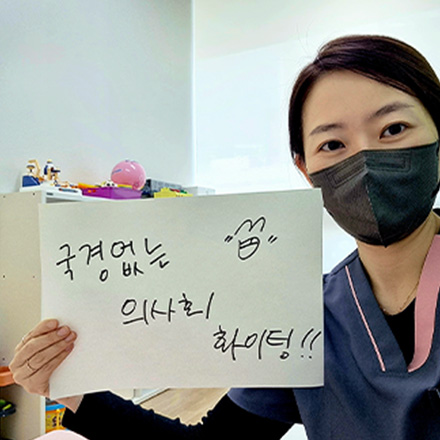 국경없는
의사회
화이팅!!